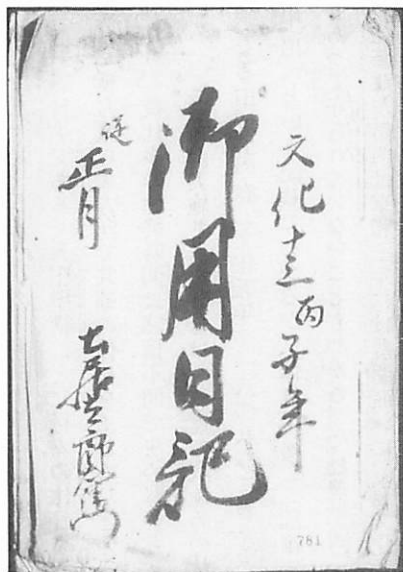 文化十三丙子年
御用日記
従正月
781